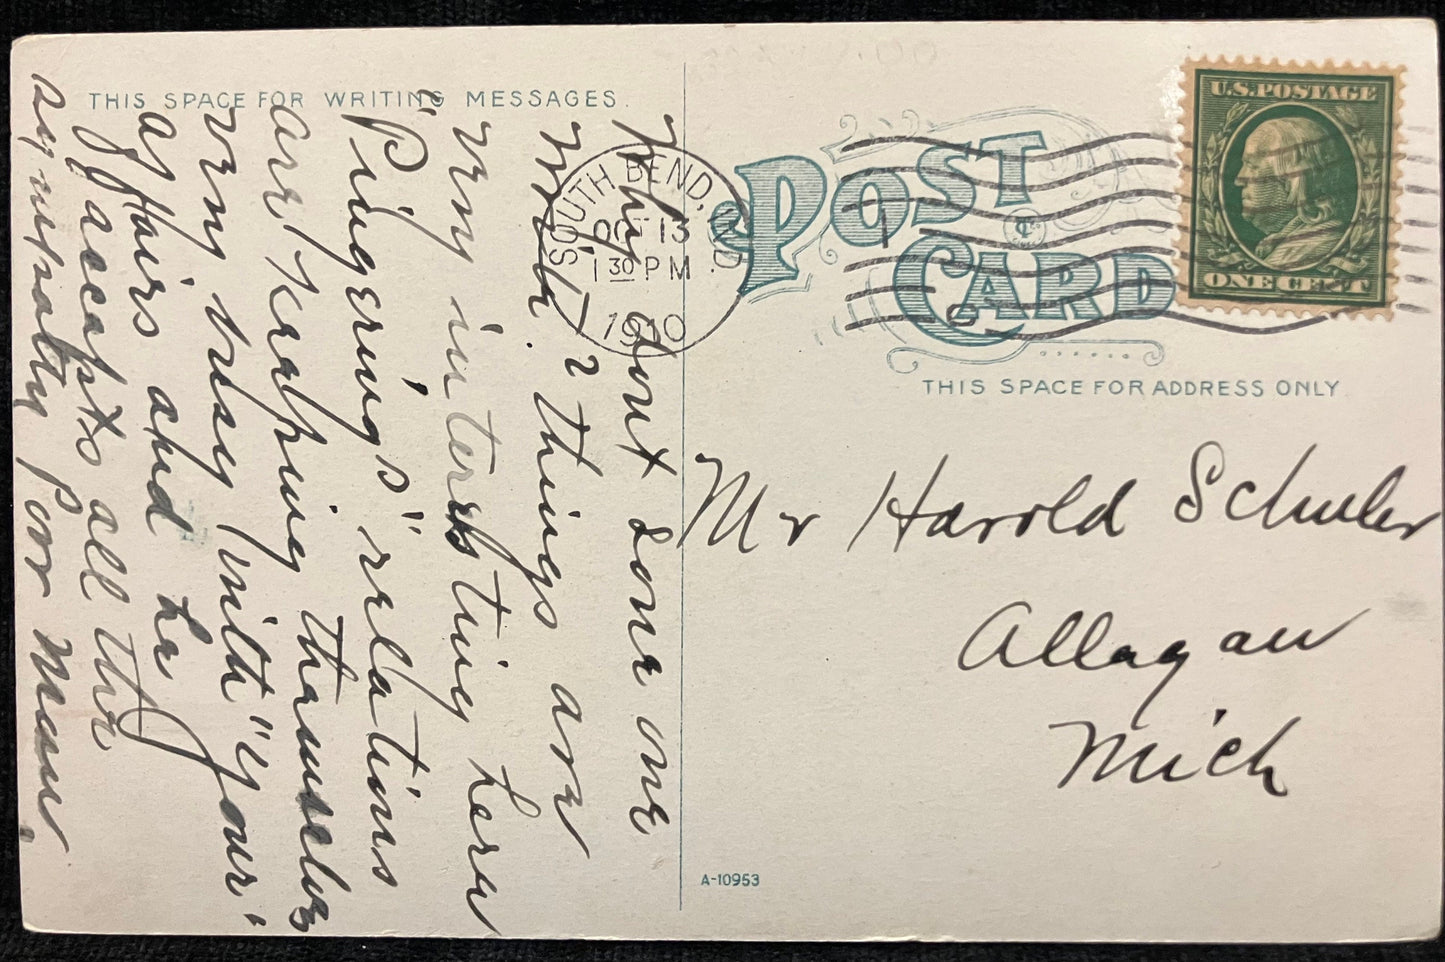 THIS SPACE FOR WRITING MESSAGES.
Why dont some one
write? things are
very interesting here
"Pingering's" relations
are keeping themselves
very busy with "your"
affairs and he
accepts all the
sympathy Poor Man,
SOUTH BEND, IND.
OCT 13
1 30 PM
1910
POST CARD
U.S. POSTAGE
ONE CENT
THIS SPACE FOR ADDRESS ONLY.
Mr Harold Schuler
Allegan
Mich
A-10953